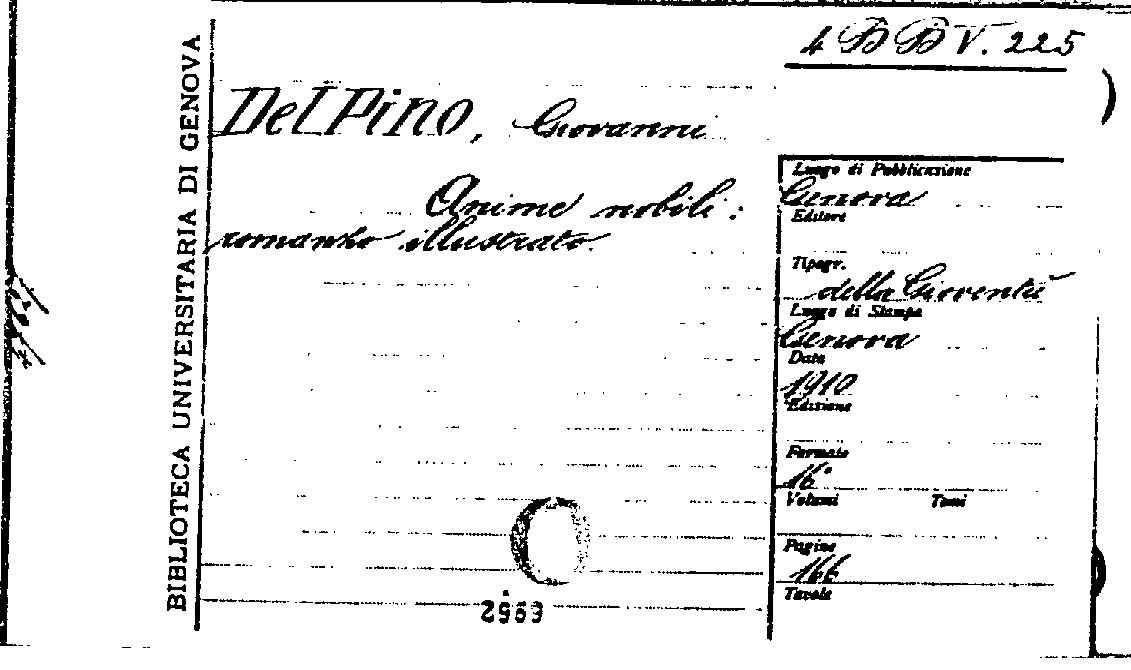 4 B B V. 225
BIBLIOTECA UNIVERSITARIA DI GENOVA
Del Pino, Giovanni
Anime nobili:
romanzo illustrato
Luogo di Pubblicazione
Genova
Editore
Tipogr.
della Gioventù
Luogo di Stampa
Genova
Data
1910
Edizione
Formato
16°
Volumi Tomi
Pagine
166
Tavole